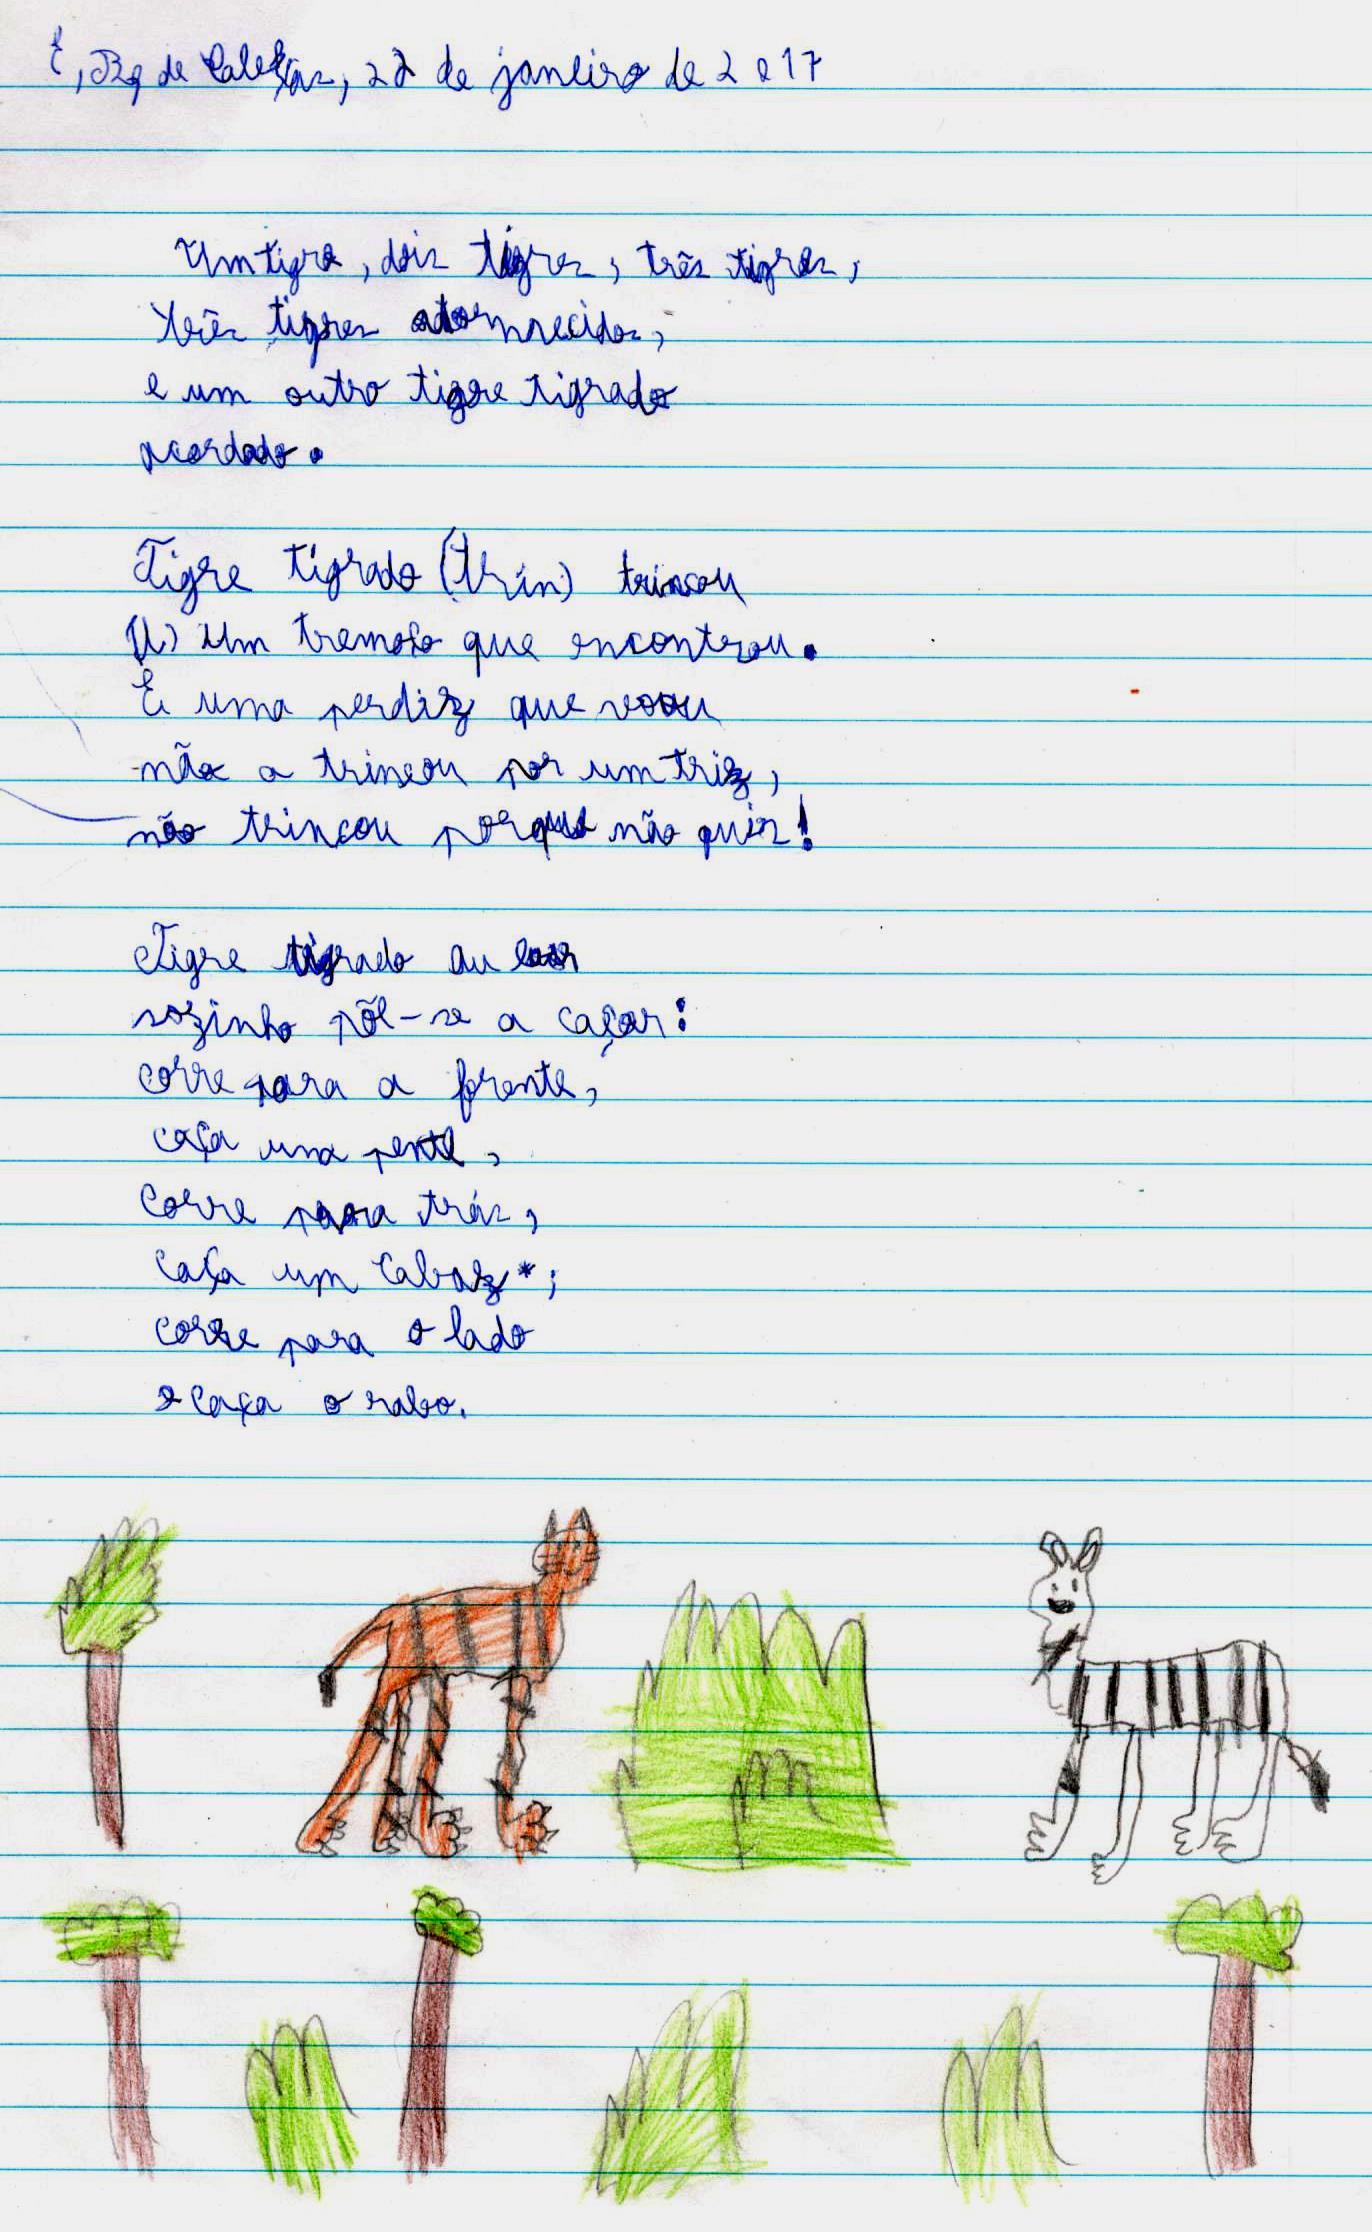 de janeiro de 2017
Um tigre, dois tigres, três tigres,
três tigres adormecidos,
e um outro tigre tigrado
acordado.
Tigre tigrado (trin) trincou
Um tremoço que encontrou.
E uma perdiz que voou
não a trincou por um triz,
não trincou porque não quis!
Tigre tigrado ao
sozinho põe-se a caçar:
corre para a frente,
caça um pente,
corre para trás,
caça um cabaz*;
corre para o lado
e caça o rabo.